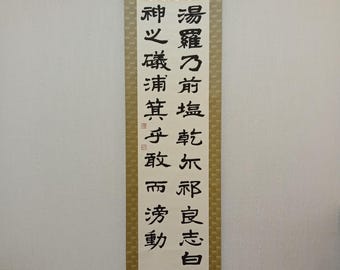 湯羅乃前塩乾尓祁良志白
神之礒浦箕乎敢而滂動